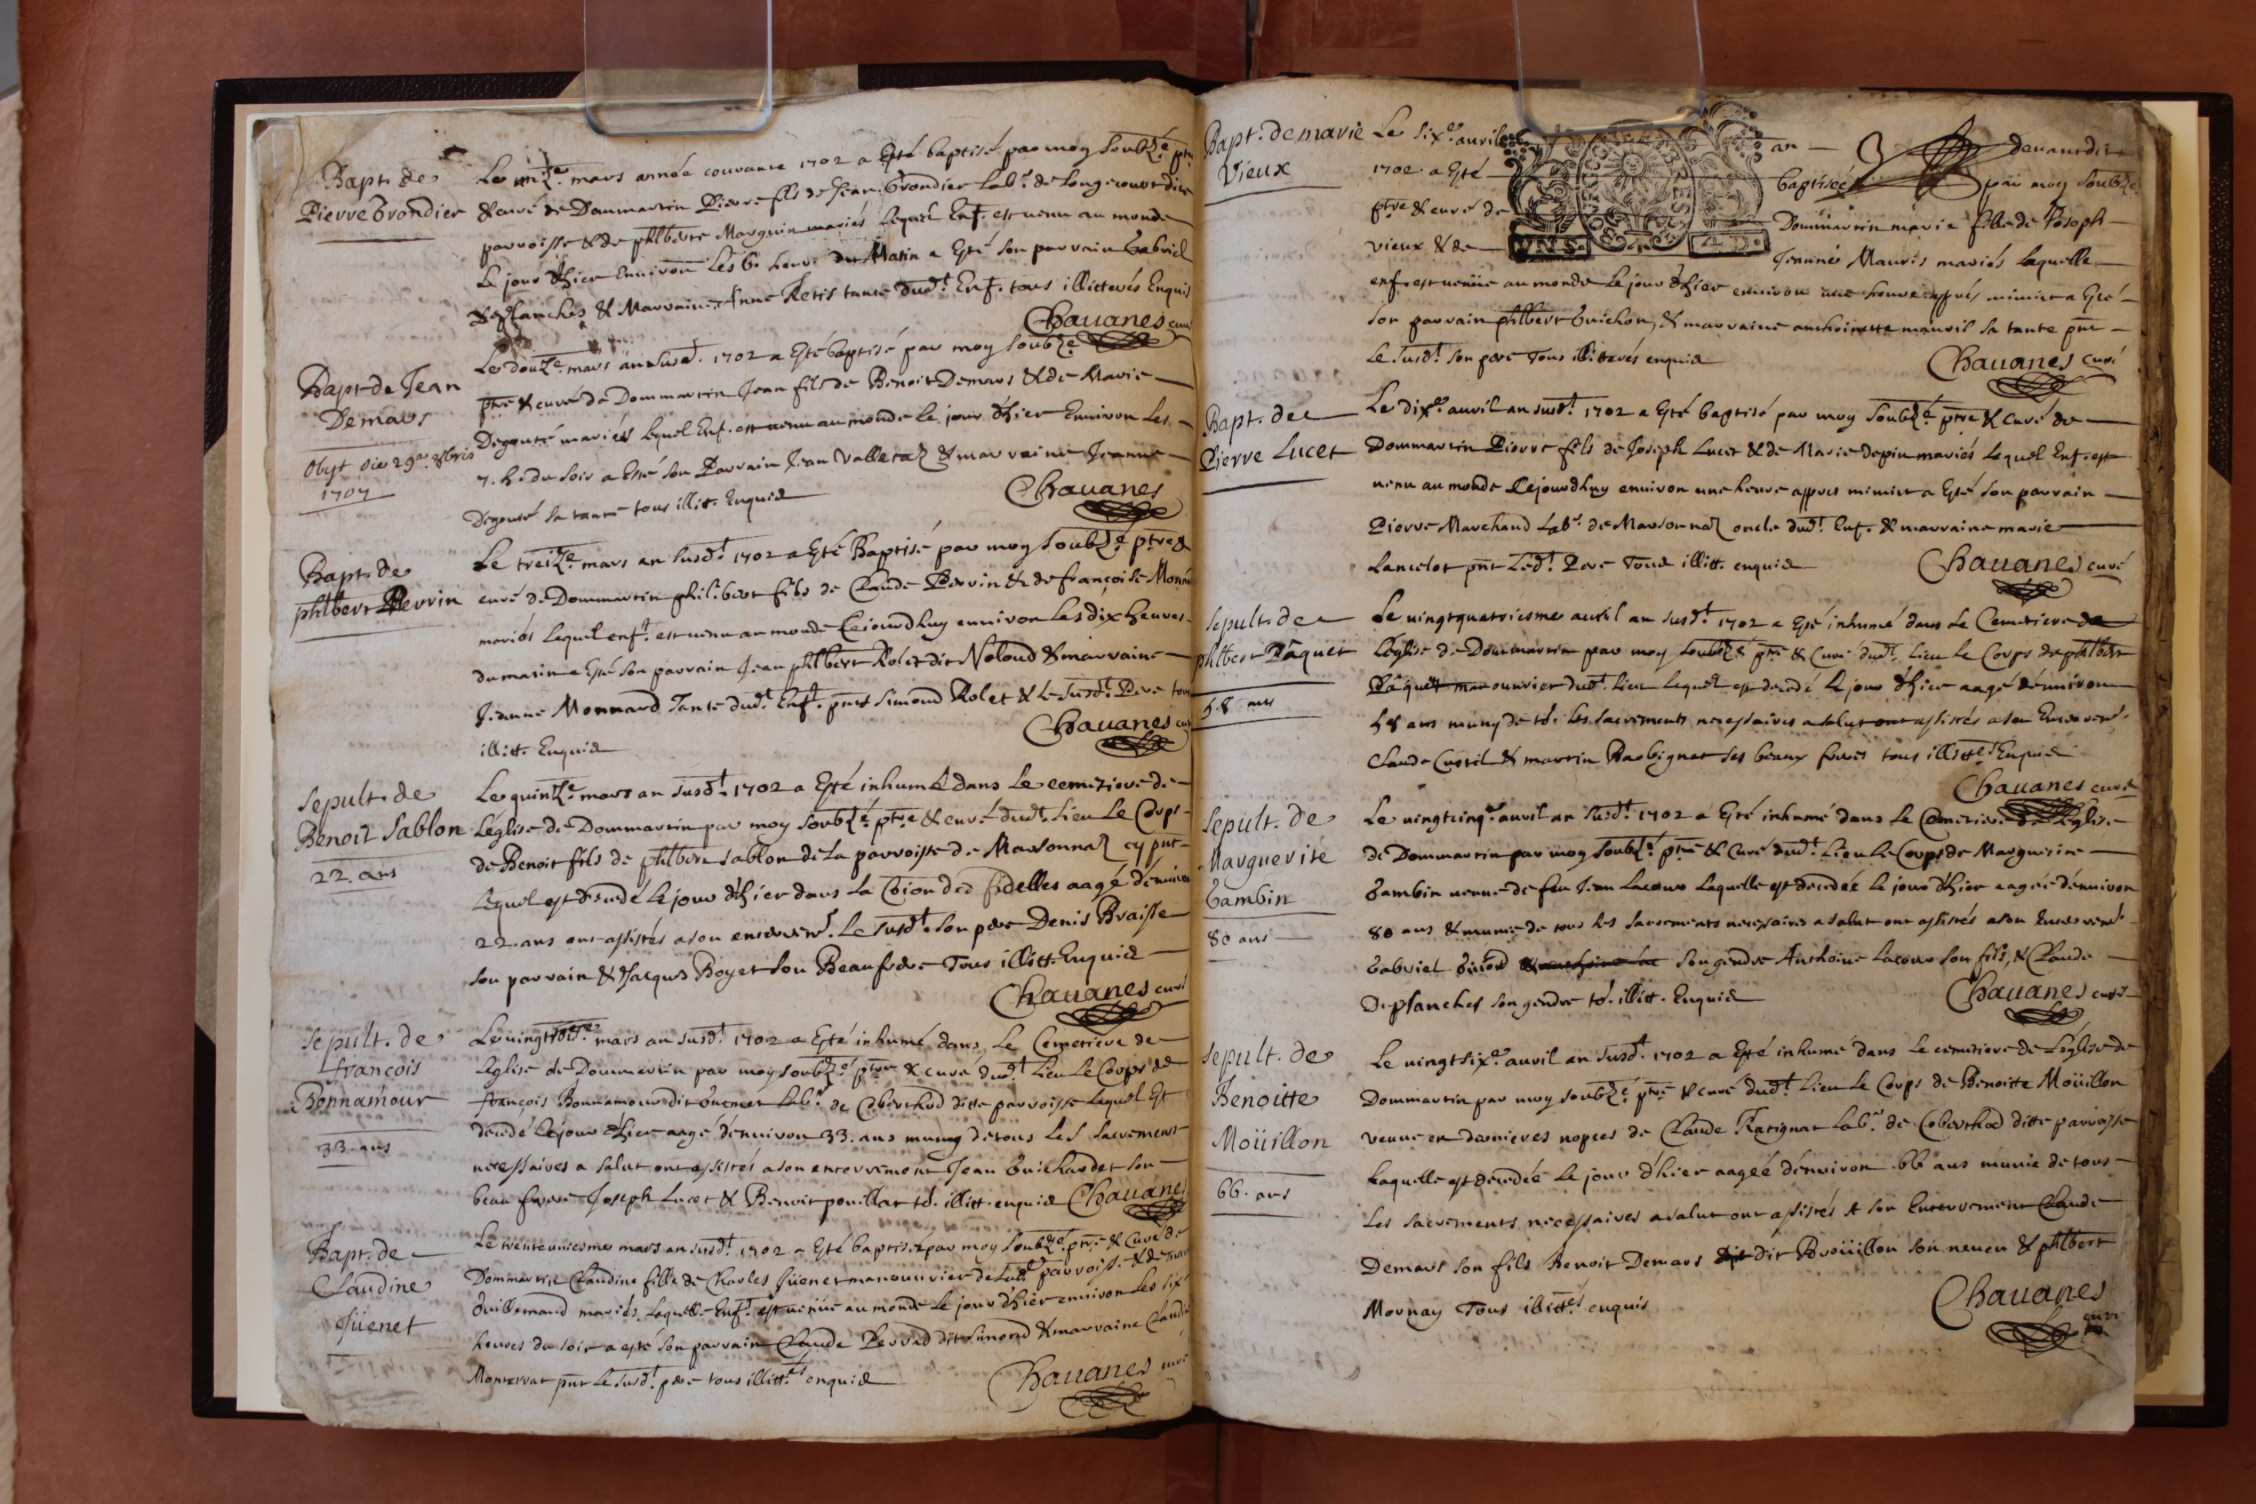 Bapt. de
Pierre Brondier
Le mars année courante 1702 a Esté baptisé par moy soubzé ptre
& curé de Dommartin Pierre fils de Jean Brondier Labr. de Longecourt ditte
parroisse & de philberte Marguin mariés lequel Enf. est venu au monde
Le jour d'hier Environ les 6. heur. du Matin a Esté son parrain Gabriel
Desplanches & Marraine Anne Retis tante dudt. Enf. tous illitterés Enquis
Chauanes curé
Bapt. de Jean
Demars
Obyt die 29a. 8bris
1707
Le douze. mars an susdt. 1702 a Esté baptisé par moy soubzé
ptre & curé de Dommartin Jean fils de Benoit Demars & de Marie
Degouté mariés lequel Enf. est venu au monde le jour d'hier Environ Les
7. h. du soir a Esté son Parrain Jean Valletaz & marraine Jeanne
Degouté sa tante tous illitt. Enquis
Chauanes
Bapt. de
philbert Perrin
Le treize. mars an susdt. 1702 a Esté Baptisé par moy soubzé ptre &
curé de Dommartin philibert fils de Claude Perrin & de françoise
mariés lequel enft. est venu au monde Cejourdhuy environ Les dix heures
du matin a Esté son parrain Jean philbert Rolet dit Noloud & marraine
Jeanne Monnard Tante dudt. Enft. pnts Simond Rolet & le susdt. Pere tous
illitt. Enquis
Chauanes curé
Sepult. de
Benoit Sablon
22. ans
Le quinze. mars an susdt. 1702 a Esté inhumé dans Le cemetiere de
Leglise de Dommartin par moy soubzé. ptre & curé dudt. Lieu Le Corps
de Benoit fils de philbert Sablon de La parroisse de Marsonnaz cy pnt
Lequel est decedé le jour d'hier dans La Coion des fidelles aagé d'environ
22. ans ont assistés a son enterremt. Le susdt. son pere Denis Braisse
son parrain & Jacques Boyet son Beaufrere Tous illitt. Enquis
Chauanes curé
Sepult. de
françois
Bonnamour
33. ans
Le vingttroise. mars an susdt. 1702 a Esté inhumé dans Le Cemetiere de
Leglise de Dommartin par moy soubzé ptre & curé dudt. Lieu Le Corps de
françois Bonnamour dit Guenet Labr. de Coberthod ditte parroisse Lequel Est
decedé Le jour d'hier aagé denviron 33. ans muny de tous Les sacrements
necessaires a salut ont assistés a son enterrement Jean Guichardet son
beau frere Joseph Lucet & Benoit pouillat td. illitt. enquis Chauanes
Bapt. de
Claudine
Jüenet
Le trenteuniesme mars an susdt. 1702 a Esté baptisée par moy soubzé ptre & Curé de
Dommartin Claudine fille de Charles Jüenet manouurier de ladt. parroisse & de
Guillemaud mariés. Laquelle Enft. est venüe au monde Le jour d'hier environ Les six
heures du soir a esté son parrain Claude Perrad dit Simond & marraine Claudine
Monterrat pnt Le susdt. pere tous illittés enquis
Chauanes curé
Bapt. de marie
Vieux
Le sixe. auril an deuandit
1702 a Esté baptisée par moy soubzé
ptre & curé de Dommartin marie fille de Joseph
vieux & de Jeanne Mauris mariés laquelle
enf. est venüe au monde Le jour d'hier environ une heure après minuit a Esté
son parrain philbert Guichon, & marraine anthoinette mauril sa tante pnt
Le susdt. son pere Tous illitterés enquis
Chauanes curé
Bapt. de
Pierre Lucet
Le dixe. auril an susdt. 1702 a Esté baptisé par moy soubzé ptre & curé de
Dommartin Pierre fils de Joseph Lucet & de Marie depin mariés Lequel Enf. est
venu au monde Cejourdhuy environ une heure appres minuit a Esté son parrain
Pierre Marchand Labr. de Marsonnaz oncle dudt. Enf. & marraine marie
Lancelot pnt Ledt. Pere Tous illitt. enquis
Chauanes curé
Sepult. de
philbert Pâquet
58. ans
Le vingtquatriesme auril an susdt. 1702 a Esté inhumé dans Le Cemetiere de
Leglise de Dommartin par moy soubzé ptre & Curé dudt. Lieu Le Corps de philbert
Pâquet manouurier dudt. Lieu Lequel est decedé Le jour d'hier aagé d'environ
58 ans muny de td. Les sacrements necessaires a salut ont assistés a son Enterremt.
Claude Curtil & martin Rabignat ses beaux freres tous illittes Enquis
Chauanes curé
Sepult. de
Marguerite
Gambin
80 ans
Le vingtcinqe. auril an susdt. 1702 a Esté inhumé dans Le Cemetiere de Leglise
de Dommartin par moy soubzé ptre & Curé dudt. Lieu Le Corps de Marguerite
Gambin veuue de feu Jean Lacour Laquelle est decedée le jour d'hier aagée d'environ
80 ans & munie de tous les sacrements necessaires a salut ont assistés a son Enterremt.
Gabriel son gendre Anthoine Lacour son fils, & Claude
Desplanches son gendre td. illitt. Enquis
Chauanes curé
Sepult. de
Benoitte
Moüillon
66. ans
Le vingtsixe. auril an susdt. 1702 a Esté inhumé dans Le cemetiere de Léglise de
Dommartin par moy soubzé ptre & curé dudt. Lieu Le Corps de Benoitte Moüillon
veuue en dernieres nopces de Claude Ratignat Labr. de Coberthod ditte parroisse
Laquelle est decedée Le jour d'hier aagée d'environ 66 ans munie de tous
Les sacrements necessaires a salut ont assistés A son Enterrement Claude
Demars son fils Benoit Demars dit Broüillon son neueu & philbert
Mornay Tous illittes enquis
Chauanes
curé